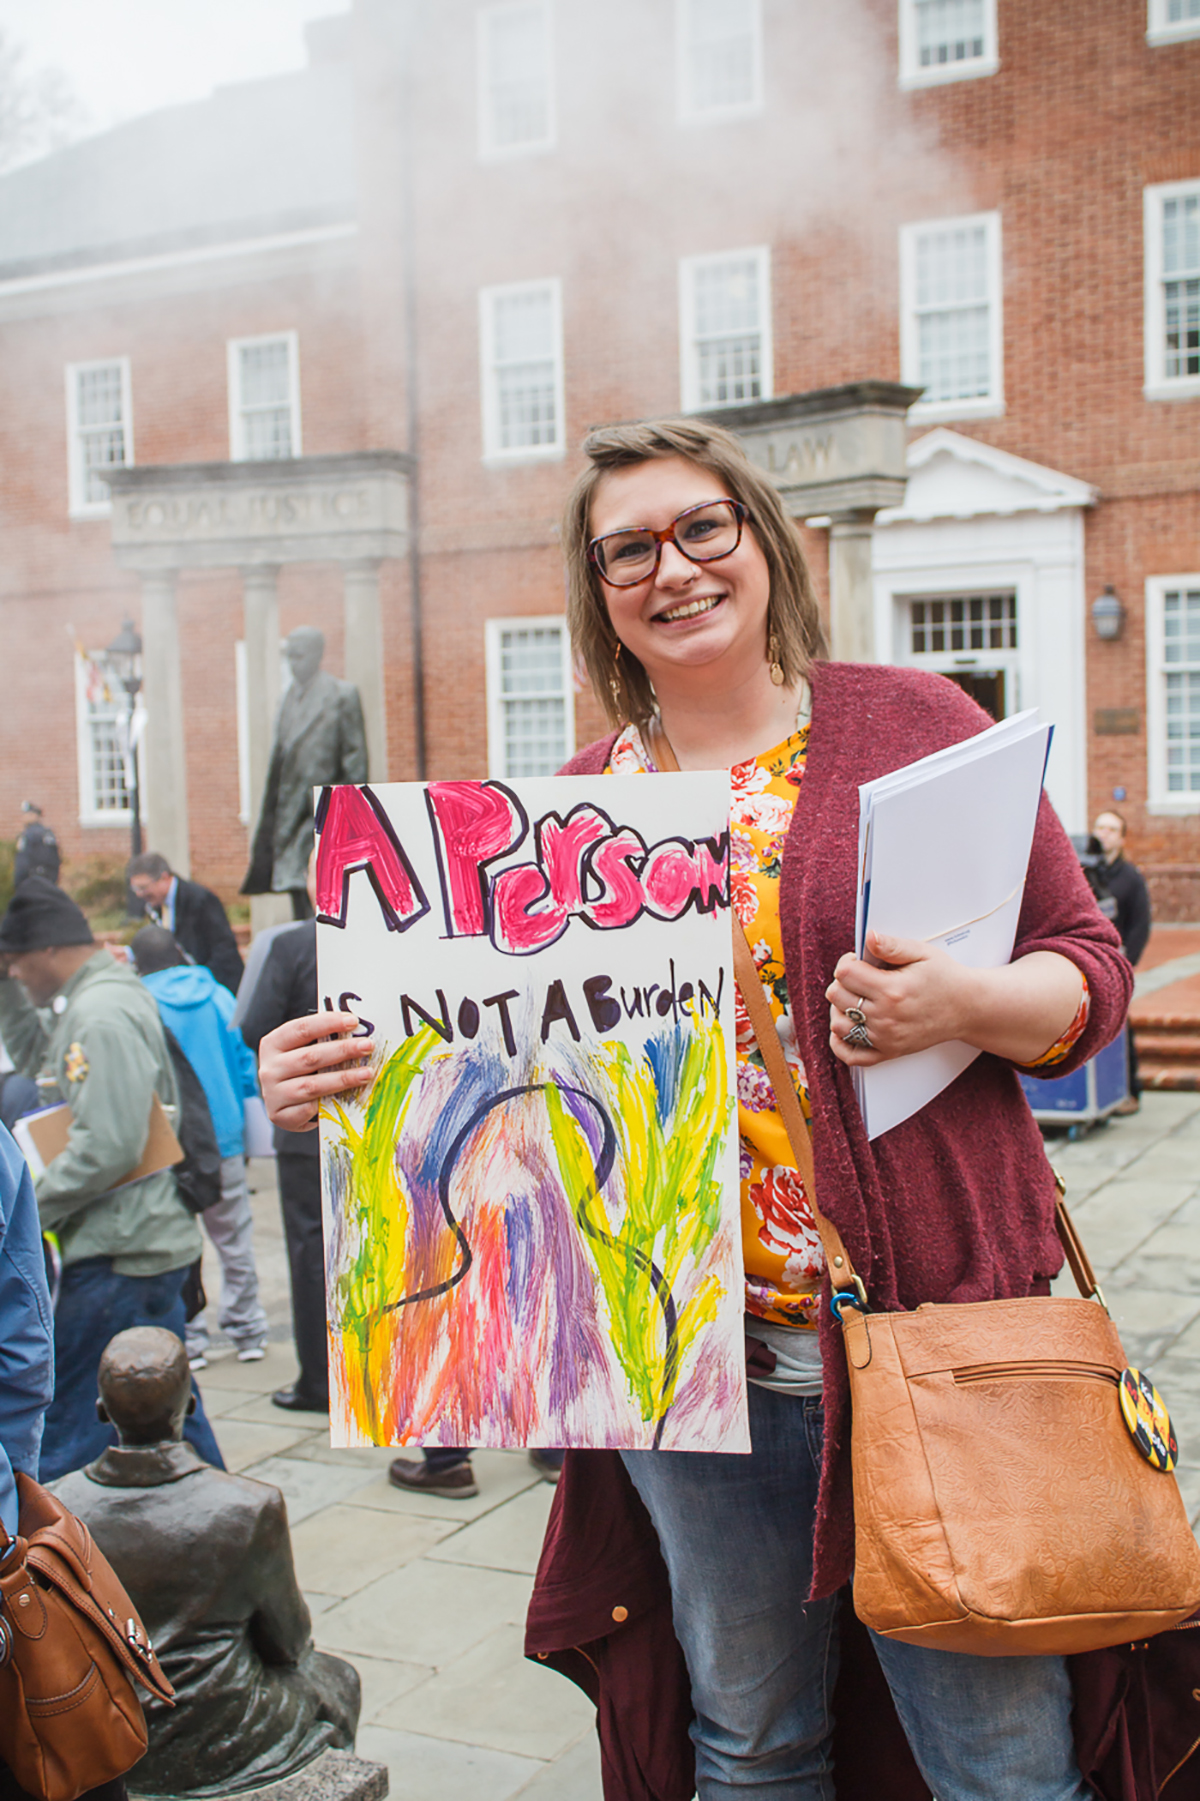 EQUAL JUSTICE
LAW
A Person
IS NOT A BurdeN